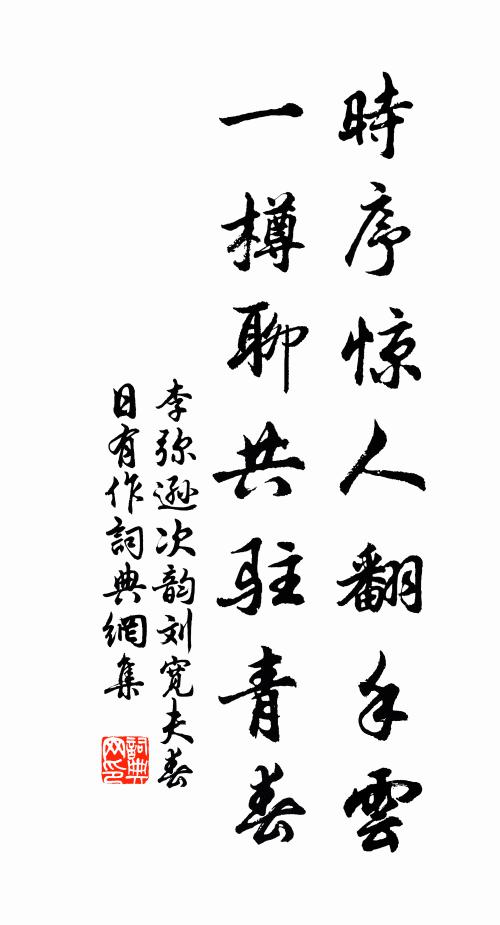 時序惊人翻手雲
一樽聊共驻青春
李弥遜次韵刘寬夫春
日有作詞典網集
詞典
网印